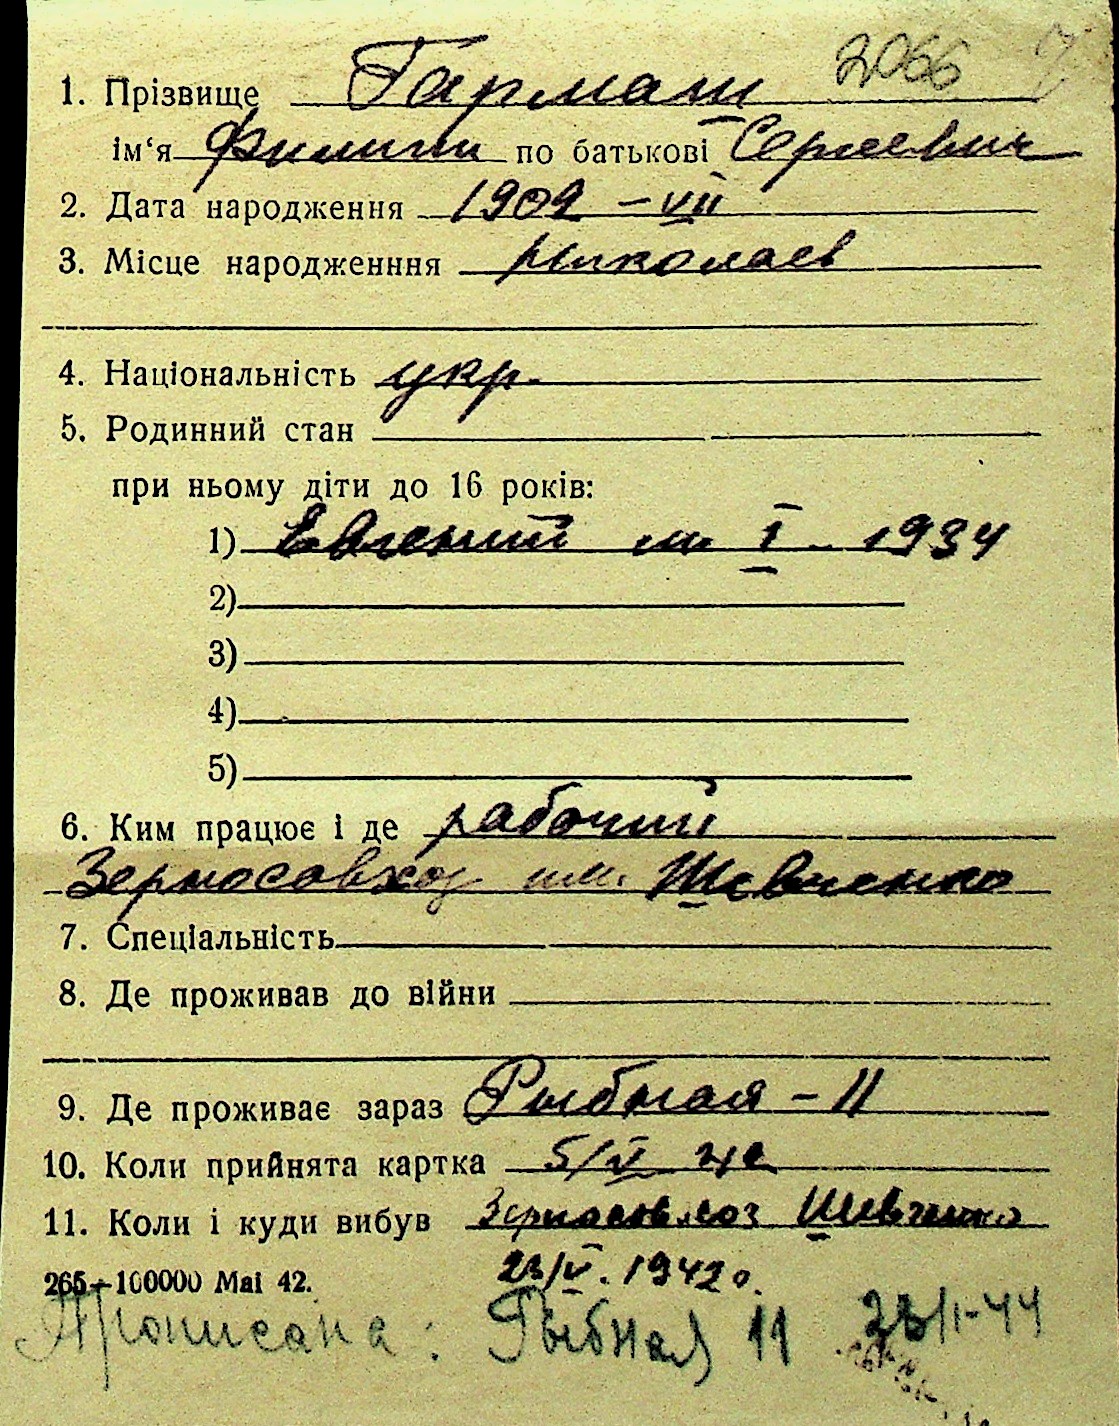 2066
1. Прізвище Гармаш
ім‘я Филипп по батькові Сергеевич
2. Дата народження 1909 – VII
3. Місце народженння Николаев
4. Національність укр.
5. Родинний стан
при ньому діти до 16 років:
1) Евгений I – 1934
2)
3)
4)
5)
6. Ким працює і де рабочий
Зерносовхоз им. Шевченко
7. Спеціальність
8. Де проживав до війни
9. Де проживає зараз Рыбная – 11
10. Коли прийнята картка 5/V 42
11. Коли і куди вибув Зерносовхоз Шевченко
265—100000 Mai 42. 23/V. 1942 г.
Прописана: Рыбная 11